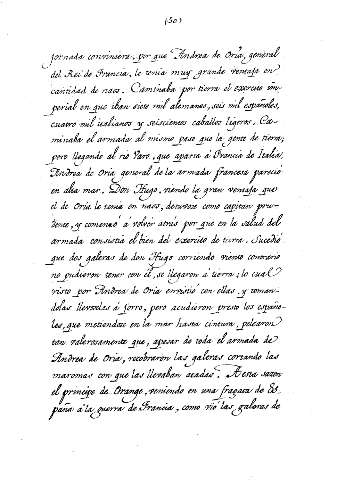 (50)
jornada convinsera, por que Andrea de Oria, general
del Rei de Francia, le tenia muy grande ventaja en
cantidad de naos. Caminaba por tierra el exercito im-
perial en que iban siete mil alemanes, seis mil españoles,
cuatro mil italianos y seiscientos caballos ligeros. Ca-
minaba el armada al mismo paso que la gente de tierra;
pero llegando al rio Varo, que aparta á Francia de Italia,
Andrea de Oria general de la armada francesa parecio
en alta mar. Don Hugo, viendo la gran ventaja que
el de Oria le tenia en naos, detuvose como capitan pru-
dente, y comenzó á volver atrás por que en la salud del
armada consistia el bien del exercito de tierra. Sucedió
que dos galeras de don Hugo corriendo viento contrario
no pudieron tener con él, se llegaron á tierra; lo cual
visto por Andrea de Oria envistió con ellas, y toman-
dolas llevabelas á jorro, pero acudieron presto los españo-
les, que metiendose en la mar hasta cintura, pelearon
tan valerosamente que, apesar de toda el armada de
Andrea de Oria, recobraron las galeras cortando las
maromas con que las llevaban atadas. A esta sazon
el principe de Orange, veniendo en una fragata de Es-
paña á la guerra de Francia, como vió las galeras de